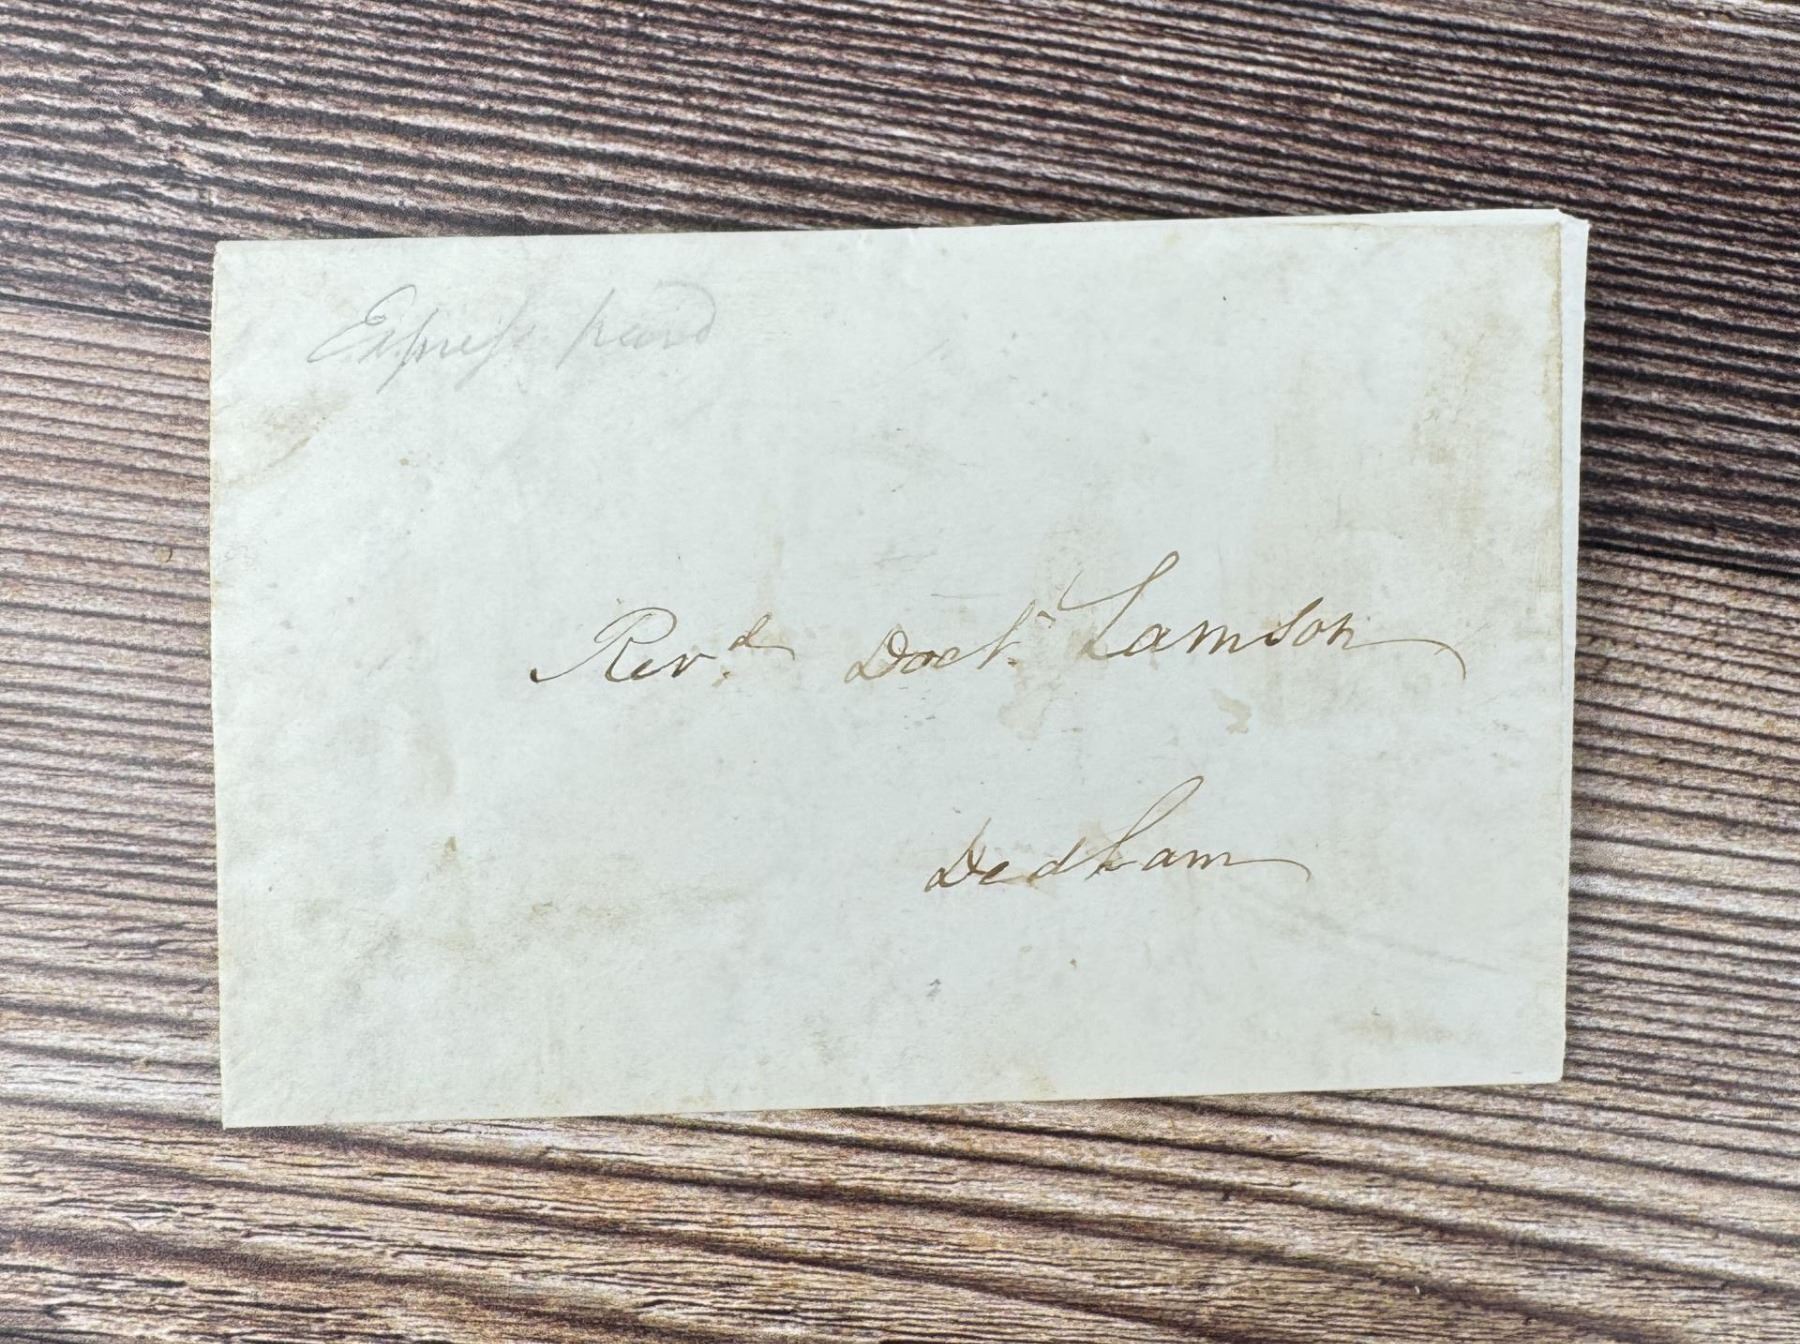 Express paid
Rev.d Doct. Lamson
Dedham